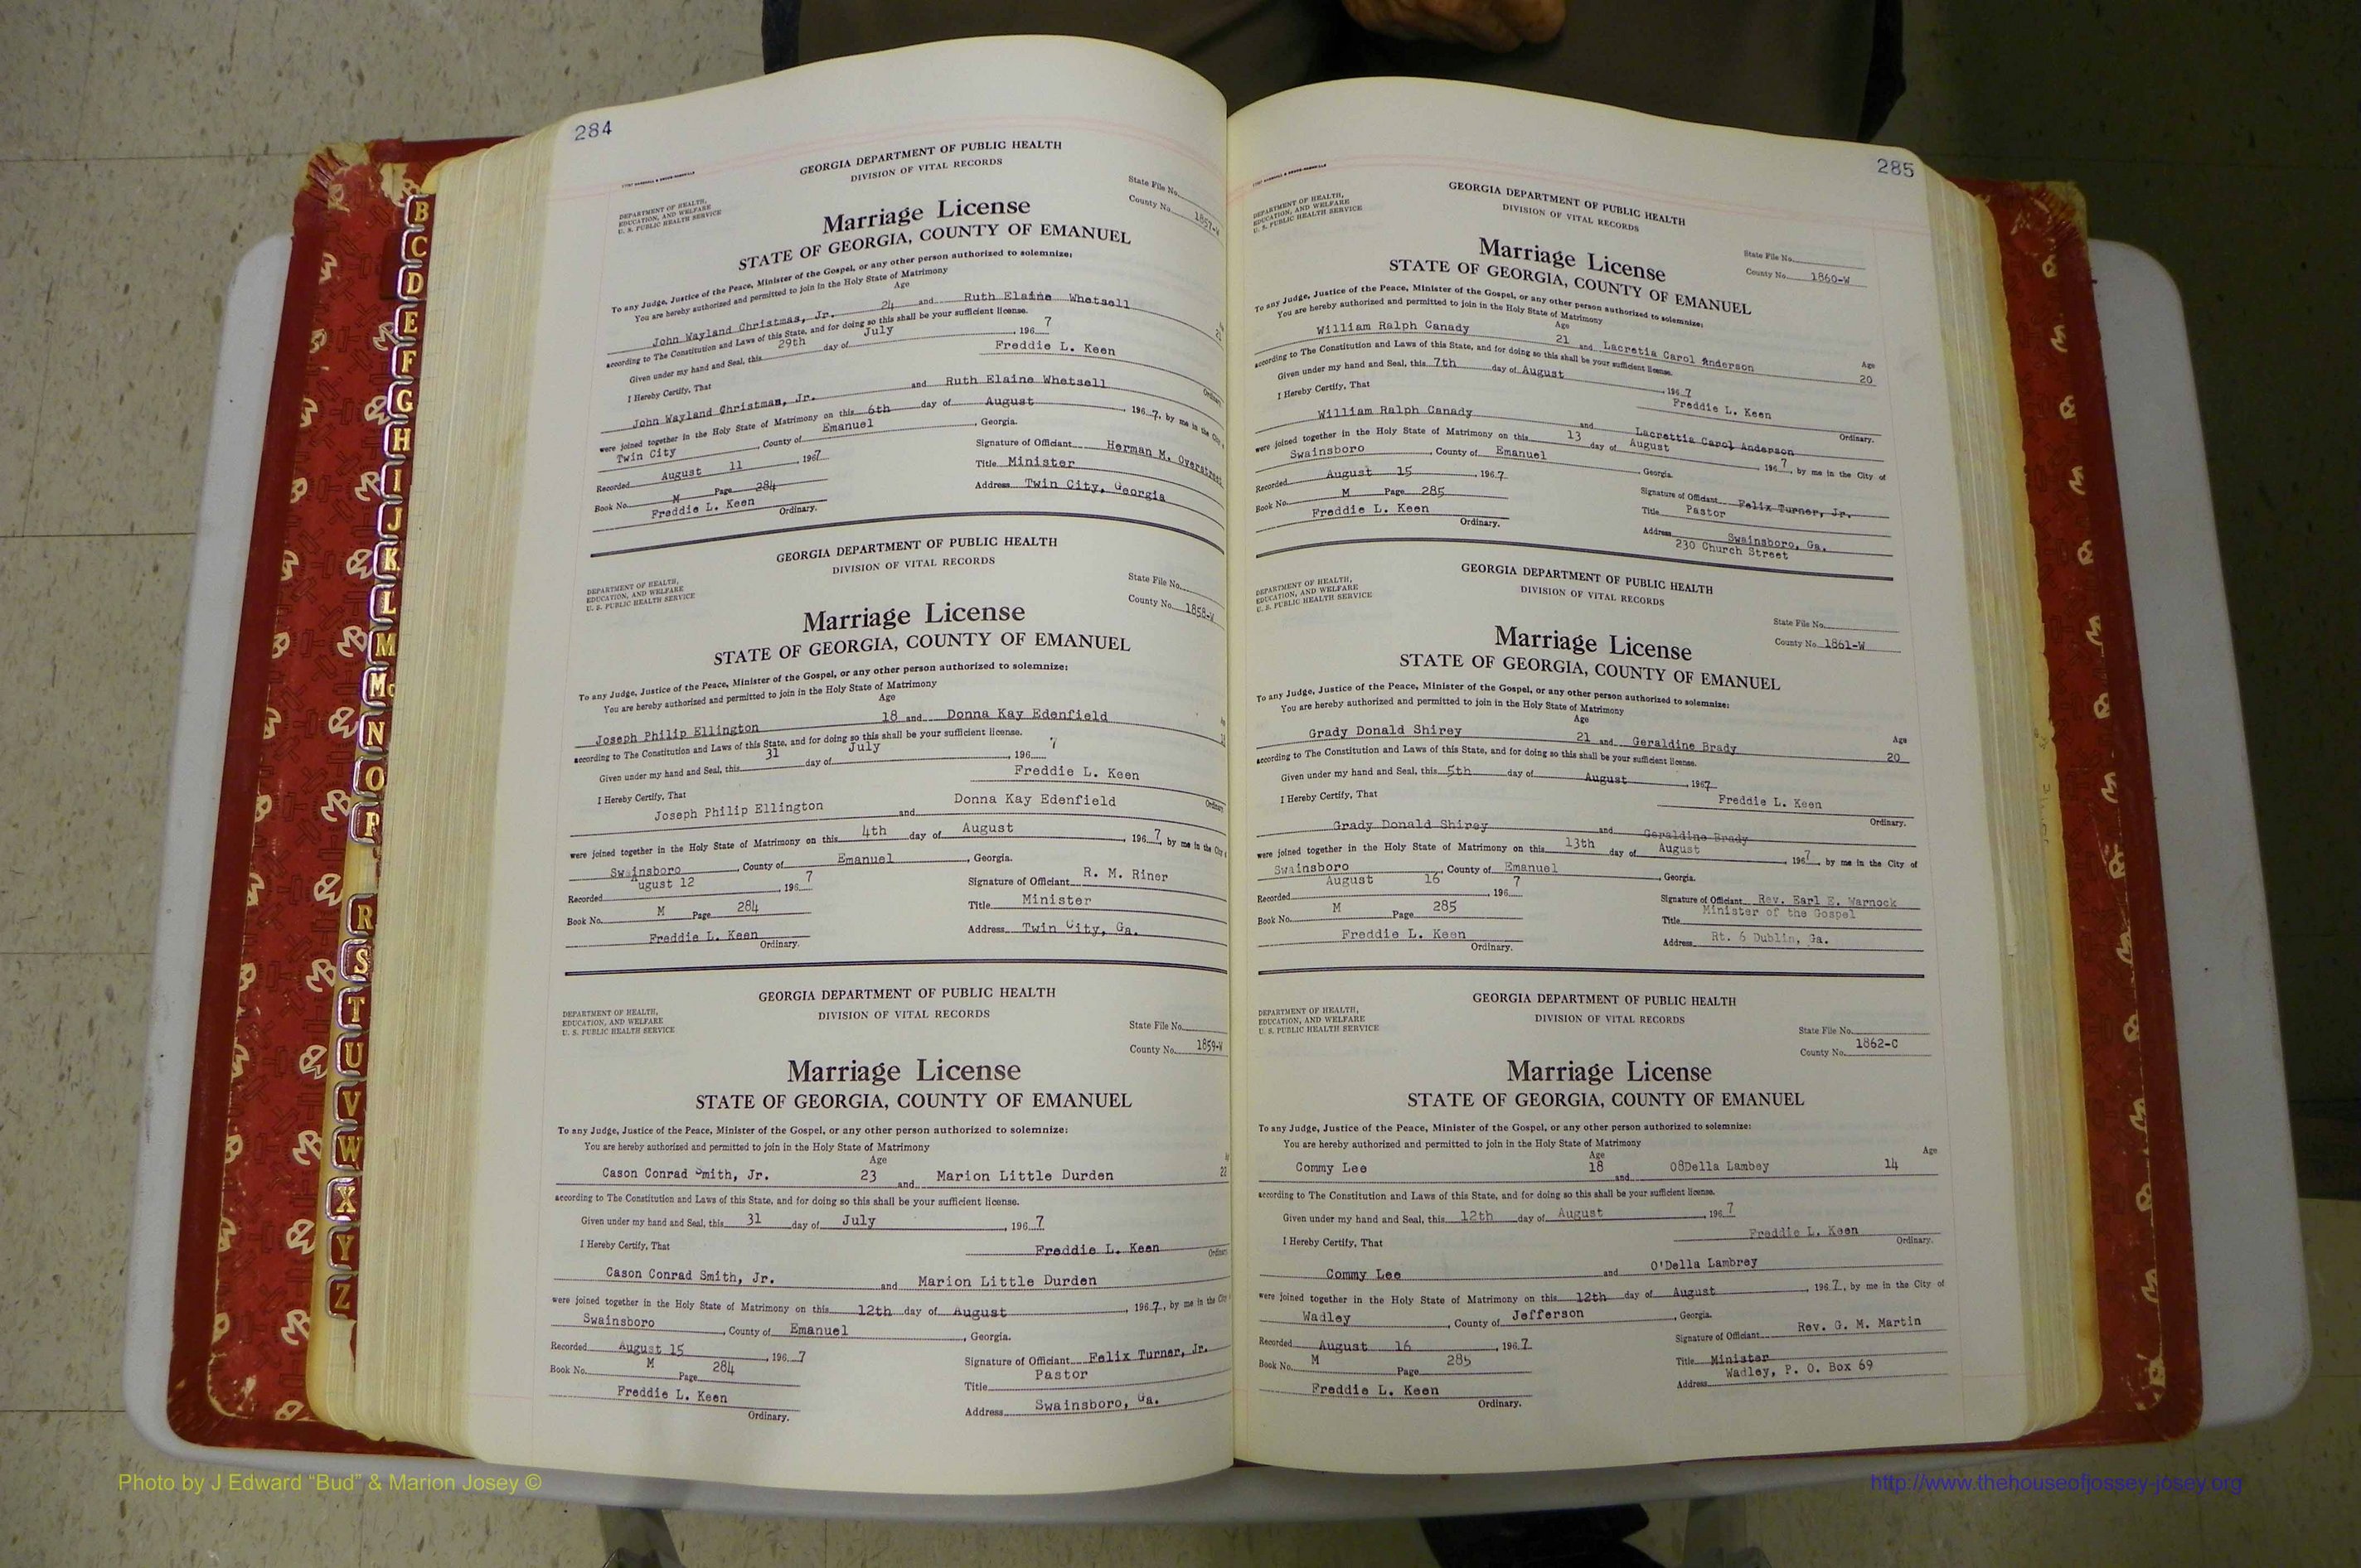 284
GEORGIA DEPARTMENT OF PUBLIC HEALTH
DIVISION OF VITAL RECORDS
DEPARTMENT OF HEALTH,
EDUCATION, AND WELFARE
U. S. PUBLIC HEALTH SERVICE
State File No.
County No. 1857-W
Marriage License
STATE OF GEORGIA, COUNTY OF EMANUEL
To any Judge, Justice of the Peace, Minister of the Gospel, or any other person authorized to solemnize:
You are hereby authorized and permitted to join in the Holy State of Matrimony
Age
John Wayland Christmas, Jr. 24 and Ruth Elaine Whetsell
according to The Constitution and Laws of this State, and for doing so this shall be your sufficient license.
Given under my hand and Seal, this 29th day of July, 1967
Freddie L. Keen
I Hereby Certify, That
John Wayland Christman, Jr. and Ruth Elaine Whetsell
were joined together in the Holy State of Matrimony on this 6th day of August, 1967, by me in the City
Twin City, County of Emanuel, Georgia.
Recorded August 11, 1967
Signature of Officiant Herman M. Overstreet
Title Minister
Book No. M Page 284
Address Twin City, Georgia
Freddie L. Keen
Ordinary.
GEORGIA DEPARTMENT OF PUBLIC HEALTH
DIVISION OF VITAL RECORDS
DEPARTMENT OF HEALTH,
EDUCATION, AND WELFARE
U. S. PUBLIC HEALTH SERVICE
State File No.
County No. 1858-W
Marriage License
STATE OF GEORGIA, COUNTY OF EMANUEL
To any Judge, Justice of the Peace, Minister of the Gospel, or any other person authorized to solemnize:
You are hereby authorized and permitted to join in the Holy State of Matrimony
Age
Joseph Philip Ellington 18 and Donna Kay Edenfield
according to The Constitution and Laws of this State, and for doing so this shall be your sufficient license.
Given under my hand and Seal, this 31 day of July, 1967
Freddie L. Keen
I Hereby Certify, That
Joseph Philip Ellington and Donna Kay Edenfield
were joined together in the Holy State of Matrimony on this 4th day of August, 1967, by me in the City
Swainsboro, County of Emanuel, Georgia.
Recorded August 12, 1967
Signature of Officiant R. M. Riner
Book No. M Page 284
Title Minister
Freddie L. Keen
Ordinary.
Address Twin City, Ga.
GEORGIA DEPARTMENT OF PUBLIC HEALTH
DIVISION OF VITAL RECORDS
DEPARTMENT OF HEALTH,
EDUCATION, AND WELFARE
U. S. PUBLIC HEALTH SERVICE
State File No.
County No. 1859-W
Marriage License
STATE OF GEORGIA, COUNTY OF EMANUEL
To any Judge, Justice of the Peace, Minister of the Gospel, or any other person authorized to solemnize:
You are hereby authorized and permitted to join in the Holy State of Matrimony
Age
Cason Conrad Smith, Jr. 23 and Marion Little Durden 22
according to The Constitution and Laws of this State, and for doing so this shall be your sufficient license.
Given under my hand and Seal, this 31 day of July, 1967
I Hereby Certify, That
Freddie L. Keen
Cason Conrad Smith, Jr. and Marion Little Durden
were joined together in the Holy State of Matrimony on this 12th day of August, 1967, by me in the City
Swainsboro, County of Emanuel, Georgia.
Recorded August 15, 1967
Signature of Officiant Felix Turner, Jr.
Book No. M Page 284
Title Pastor
Freddie L. Keen
Ordinary.
Address Swainsboro, Ga.
285
GEORGIA DEPARTMENT OF PUBLIC HEALTH
DIVISION OF VITAL RECORDS
DEPARTMENT OF HEALTH,
EDUCATION, AND WELFARE
U. S. PUBLIC HEALTH SERVICE
State File No.
County No. 1860-W
Marriage License
STATE OF GEORGIA, COUNTY OF EMANUEL
To any Judge, Justice of the Peace, Minister of the Gospel, or any other person authorized to solemnize:
You are hereby authorized and permitted to join in the Holy State of Matrimony
Age Age
William Ralph Canady 21 and Lacretia Carol Anderson 20
according to The Constitution and Laws of this State, and for doing so this shall be your sufficient license.
Given under my hand and Seal, this 7th day of August, 1967
Freddie L. Keen
Ordinary.
I Hereby Certify, That
William Ralph Canady and Lacrettia Carol Anderson
were joined together in the Holy State of Matrimony on this 13 day of August, 1967, by me in the City of
Swainsboro, County of Emanuel, Georgia.
Recorded August 15, 1967
Signature of Officiant Felix Turner, Jr.
Book No. M Page 285
Title Pastor
Freddie L. Keen
Ordinary.
Address Swainsboro, Ga.
230 Church Street
GEORGIA DEPARTMENT OF PUBLIC HEALTH
DIVISION OF VITAL RECORDS
DEPARTMENT OF HEALTH,
EDUCATION, AND WELFARE
U. S. PUBLIC HEALTH SERVICE
State File No.
County No. 1861-W
Marriage License
STATE OF GEORGIA, COUNTY OF EMANUEL
To any Judge, Justice of the Peace, Minister of the Gospel, or any other person authorized to solemnize:
You are hereby authorized and permitted to join in the Holy State of Matrimony
Age Age
Grady Donald Shirey 21 and Geraldine Brady 20
according to The Constitution and Laws of this State, and for doing so this shall be your sufficient license.
Given under my hand and Seal, this 5th day of August, 1967
Freddie L. Keen
Ordinary.
I Hereby Certify, That
Grady Donald Shirey and Geraldine Brady
were joined together in the Holy State of Matrimony on this 13th day of August, 1967, by me in the City of
Swainsboro, County of Emanuel, Georgia.
Recorded August 16, 1967
Signature of Officiant Rev. Earl E. Warnock
Book No. M Page 285
Title Minister of the Gospel
Freddie L. Keen
Ordinary.
Address Rt. 6 Dublin, Ga.
GEORGIA DEPARTMENT OF PUBLIC HEALTH
DIVISION OF VITAL RECORDS
DEPARTMENT OF HEALTH,
EDUCATION, AND WELFARE
U. S. PUBLIC HEALTH SERVICE
State File No.
County No. 1862-C
Marriage License
STATE OF GEORGIA, COUNTY OF EMANUEL
To any Judge, Justice of the Peace, Minister of the Gospel, or any other person authorized to solemnize:
You are hereby authorized and permitted to join in the Holy State of Matrimony
Age Age
Commy Lee 18 and O8Della Lambey 14
according to The Constitution and Laws of this State, and for doing so this shall be your sufficient license.
Given under my hand and Seal, this 12th day of August, 1967
I Hereby Certify, That
Freddie L. Keen
Ordinary.
Commy Lee and O'Della Lambrey
were joined together in the Holy State of Matrimony on this 12th day of August, 1967, by me in the City of
Wadley, County of Jefferson, Georgia.
Recorded August 16, 1967
Signature of Officiant Rev. G. M. Martin
Book No. M Page 285
Title Minister
Address Wadley, P. O. Box 69
Freddie L. Keen
Ordinary.
B
C
D
E
F
G
H
I
J
K
L
M
Mc
N
O
P
R
S
T
U
V
W
X
Y
Z
Photo by J Edward “Bud” & Marion Josey ©
http://www.thehouseofjossey-josey.org